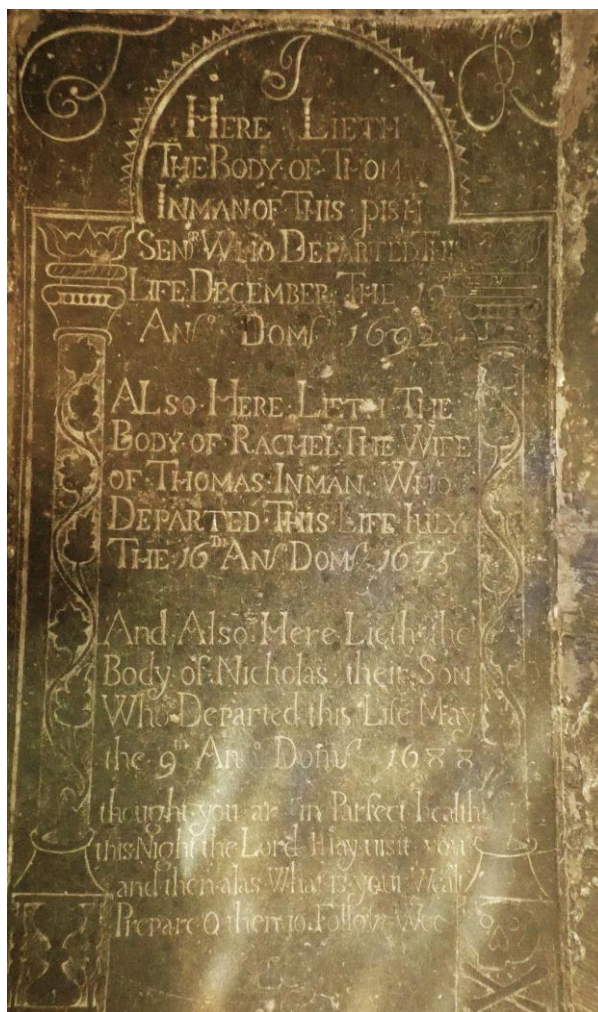 I R
HERE LIETH
THE BODY·OF·THOM
INMAN·OF·THIS pISH
SENr WHO DEPARTED THI
LIFE DECEMBER THE 10
ANo DOMſ 1692
ALSO·HERE·LIETH THE
BODY·OF·RACHEL·THE WIFE
OF·THOMAS·INMAN·WHO
DEPARTED·THIS LIFE IULY
THE·16TH ANſ DOMſ·1675
And·Also·Here·Lieth·the
Body·of·Nicholas their·Son
Who·Departed·this·Life May
the·9th Ano Domſ 1688
thought·you·are in Parfect health
this Night the Lord May visit you
and then alas What is your
Prepare O then to Follow Wee